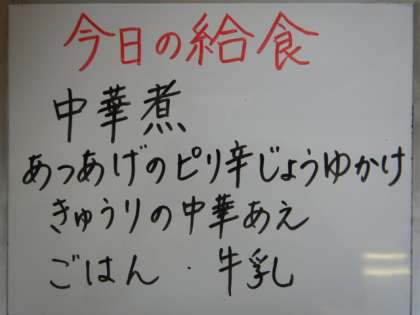 今日の給食
中華煮
あつあげのピリ辛じょうゆかけ
きゅうりの中華あえ
ごはん・牛乳